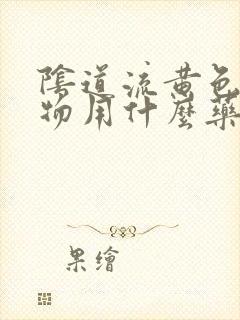 陰道流黃色
物用什麼藥
果繪